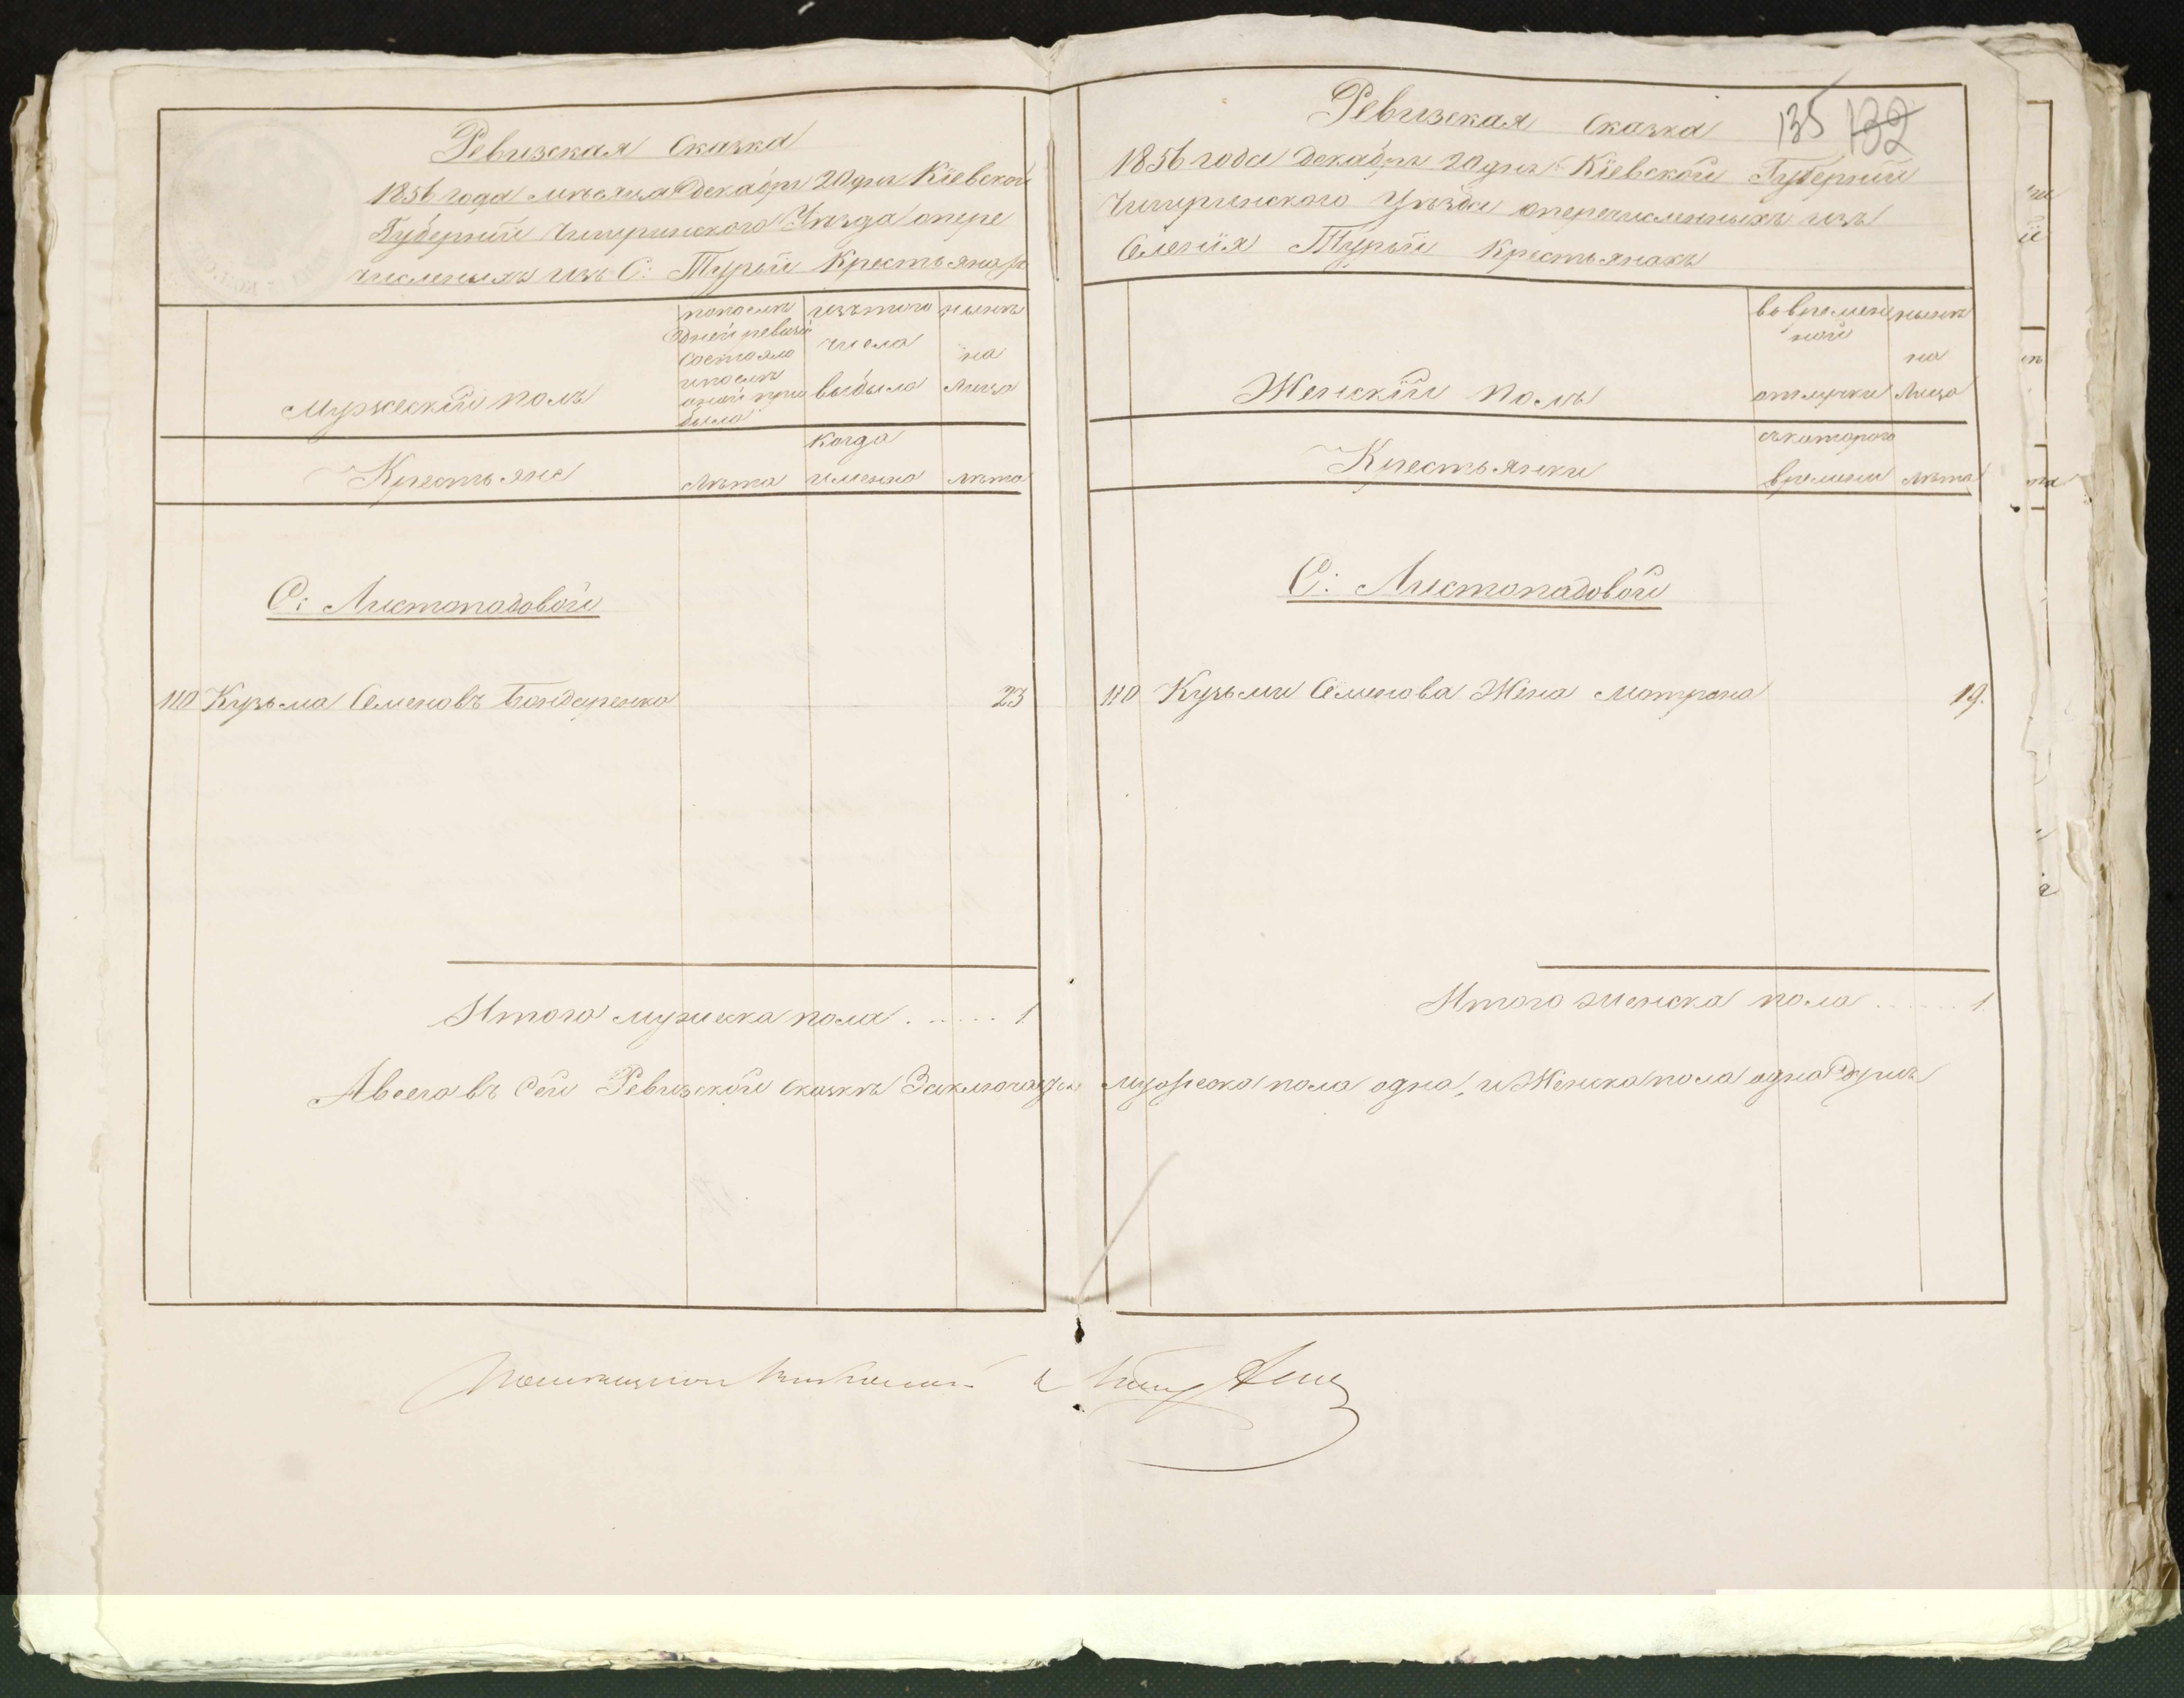 Ревизская Сказка
1856 года мѣсяца Декабря 20 дня Кіевской
Губерній Чигиринского Уѣзда опере
численыхъ изъ С: Турьи Крестьянахъ
Мужескій полъ
по послѣ
дней ревизіи
состояло
и послѣ
оной при
было
изъ того
числа
выбыло
нынѣ
на
лицо
Крестьяне
Лѣта
Когда
именно
лѣта
С: Листопадовой
110 Кузьма Семеновъ Бондаренко 23
Итого мужеска пола . . . . . . 1
А всего въ сей Ревизской сказкѣ Заключается
135 132
Ревизская Сказка
1856 года Декабря 20 дня Кіевской Губерній
Чигиринского Уѣзда оперечисленныхъ изъ
Селенія Турьи Крестьянахъ
Женскій полъ
во времен
ной
отлучки
нынѣ
на
Лицо
Крестьянки
съ которого
времени
лѣта
С: Листопадовой
110 Кузьмы Семенова Жена Матрона 19.
Итого женска пола . . . . . . 1.
мужеска пола одна, и Женска пола одна душъ